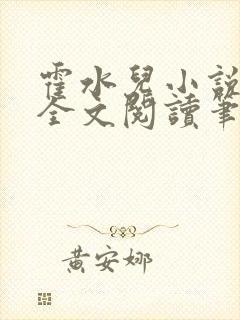 霍水兒小說
全文閱讀筆
黃安娜